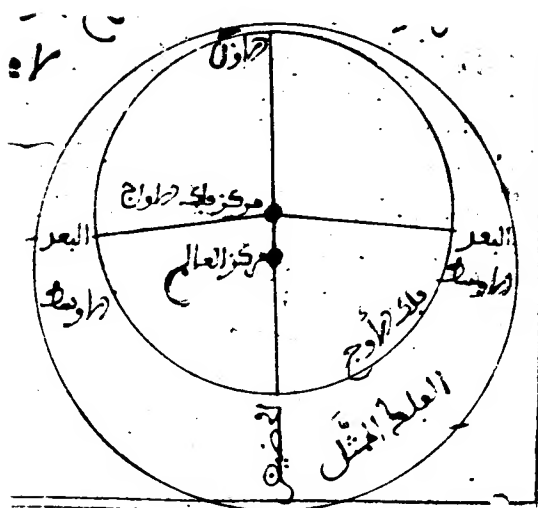 الاوج
مركز فلك الاوج
البعد
الاوسط
مركز العالم
البعد
الاوسط
فلك الأوج
الفلك الممثَّل
الحضيض